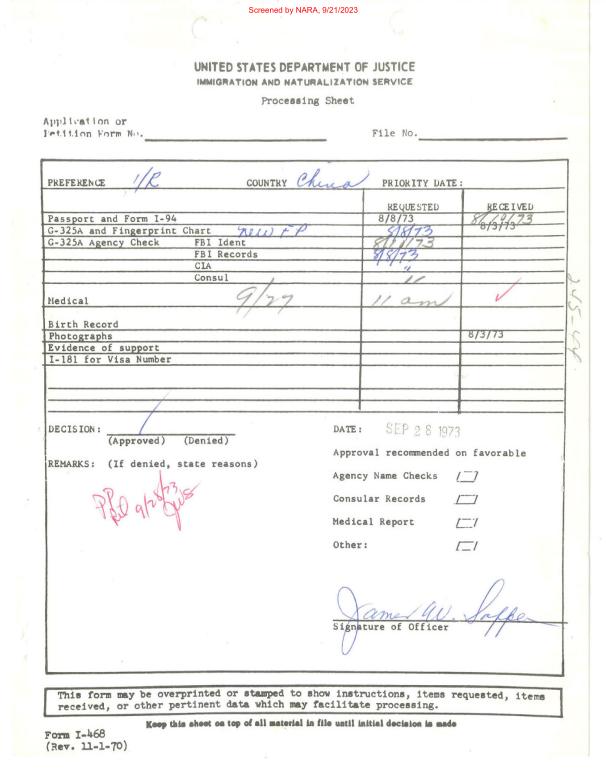 Screened by NARA, 9/21/2023
UNITED STATES DEPARTMENT OF JUSTICE
IMMIGRATION AND NATURALIZATION SERVICE
Processing Sheet
Application or
Petition Form No. File No.
PREFERENCE I/R COUNTRY China PRIORITY DATE:
REQUESTED RECEIVED
Passport and Form I-94 8/8/73 8/10/73
G-325A and Fingerprint Chart new FP 8/8/73 8/3/73
G-325A Agency Check FBI Ident 8/11/73
FBI Records 8/8/73
CIA "
Consul "
Medical 9/27 11 am ✓
Birth Record
Photographs 8/3/73
Evidence of support
I-181 for Visa Number
DECISION: / DATE: SEP 28 1973
(Approved) (Denied)
Approval recommended on favorable
REMARKS: (If denied, state reasons)
Agency Name Checks
9/28/73
Consular Records
Medical Report
Other:
James W.
Signature of Officer
This form may be overprinted or stamped to show instructions, items requested, items
received, or other pertinent data which may facilitate processing.
Keep this sheet on top of all material in file until initial decision is made
Form I-468
(Rev. 11-1-70)